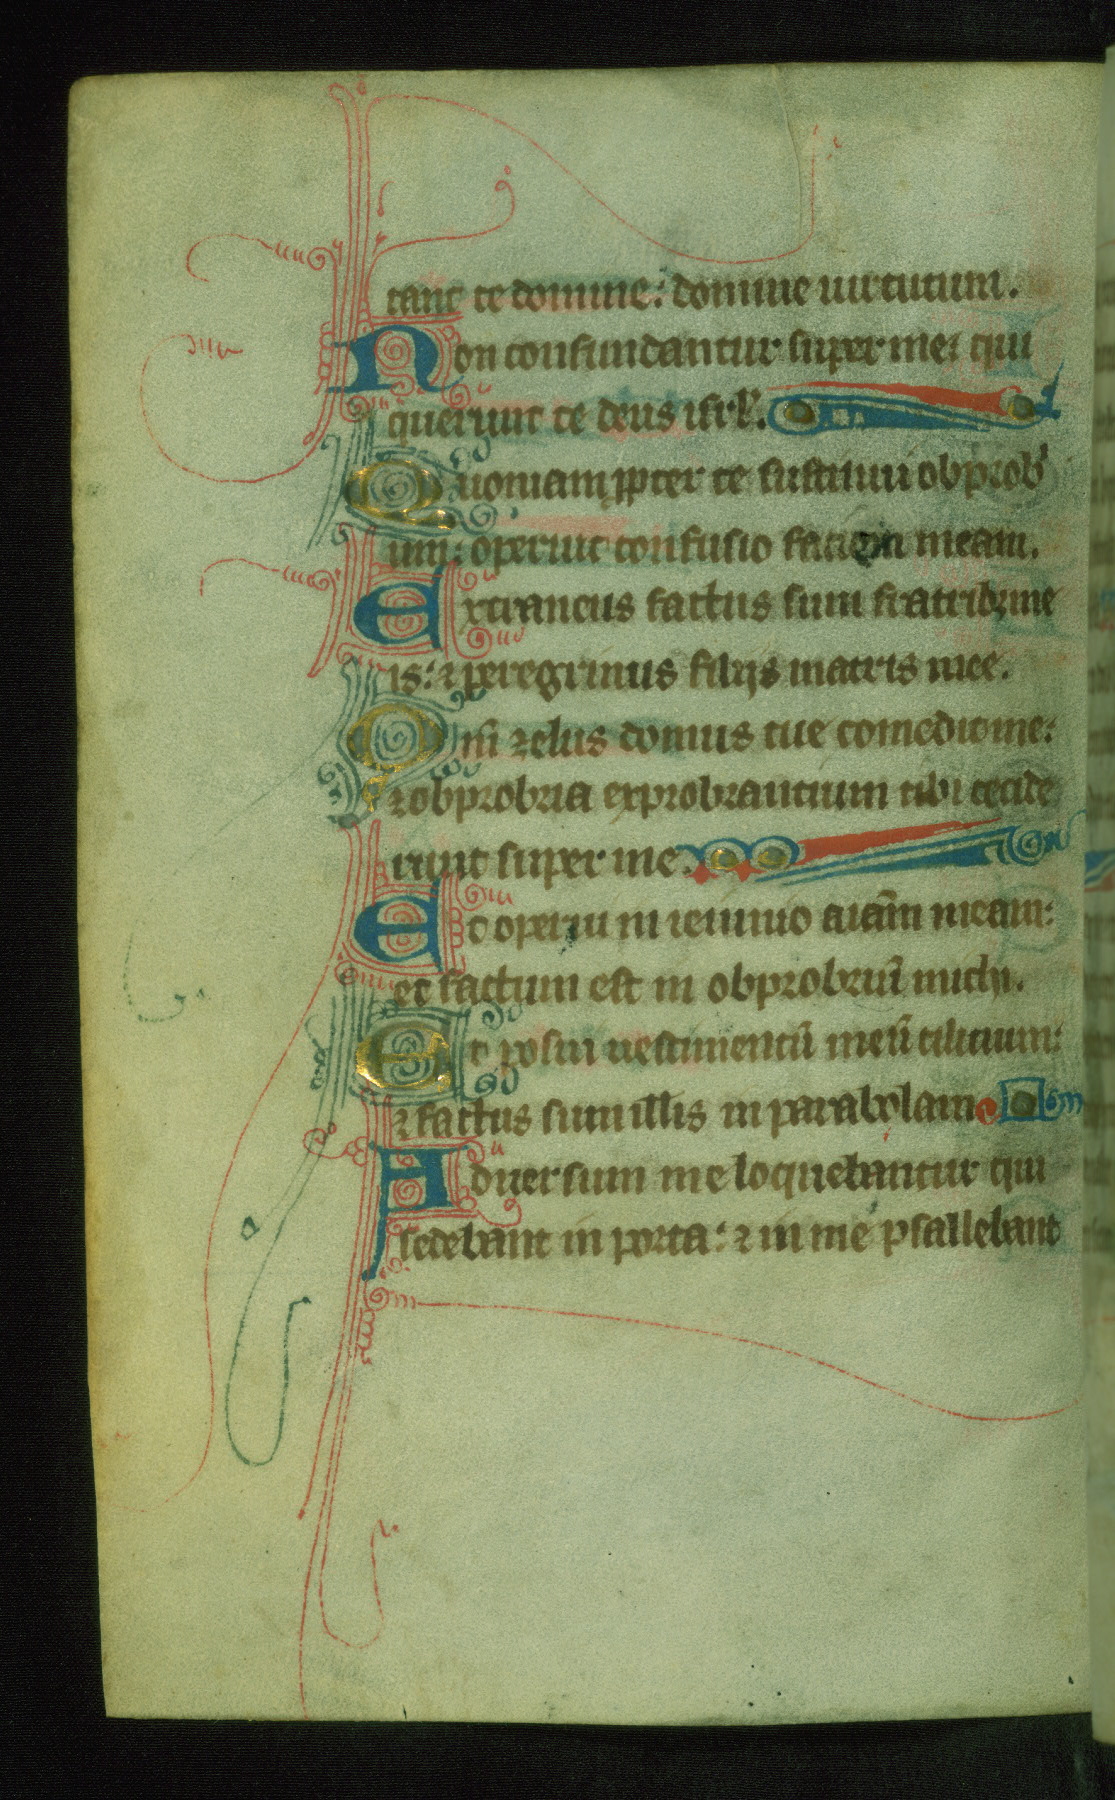 tant te domine: domine uirtutum.
Non confundantur super me: qui
querunt te deus isrl'.
Quoniam ꝓpter te sustinui obprob'
um: operuit confusio faciem meam.
Extraneus factus sum fratribꝫ me
is: ⁊ peregrinus filijs matris mee.
Qm̄ zelus domus tue comedit me:
⁊ obprobria exprobrantium tibi cecide
runt super me.
Et operui in ieiunio aiām meam:
et factum est in obprobriū michi.
Et posui uestimentū meū cilicium:
⁊ factus sum illis in parabolam.
Aduersum me loquebantur qui
sedebant in porta: ⁊ in me psallebant